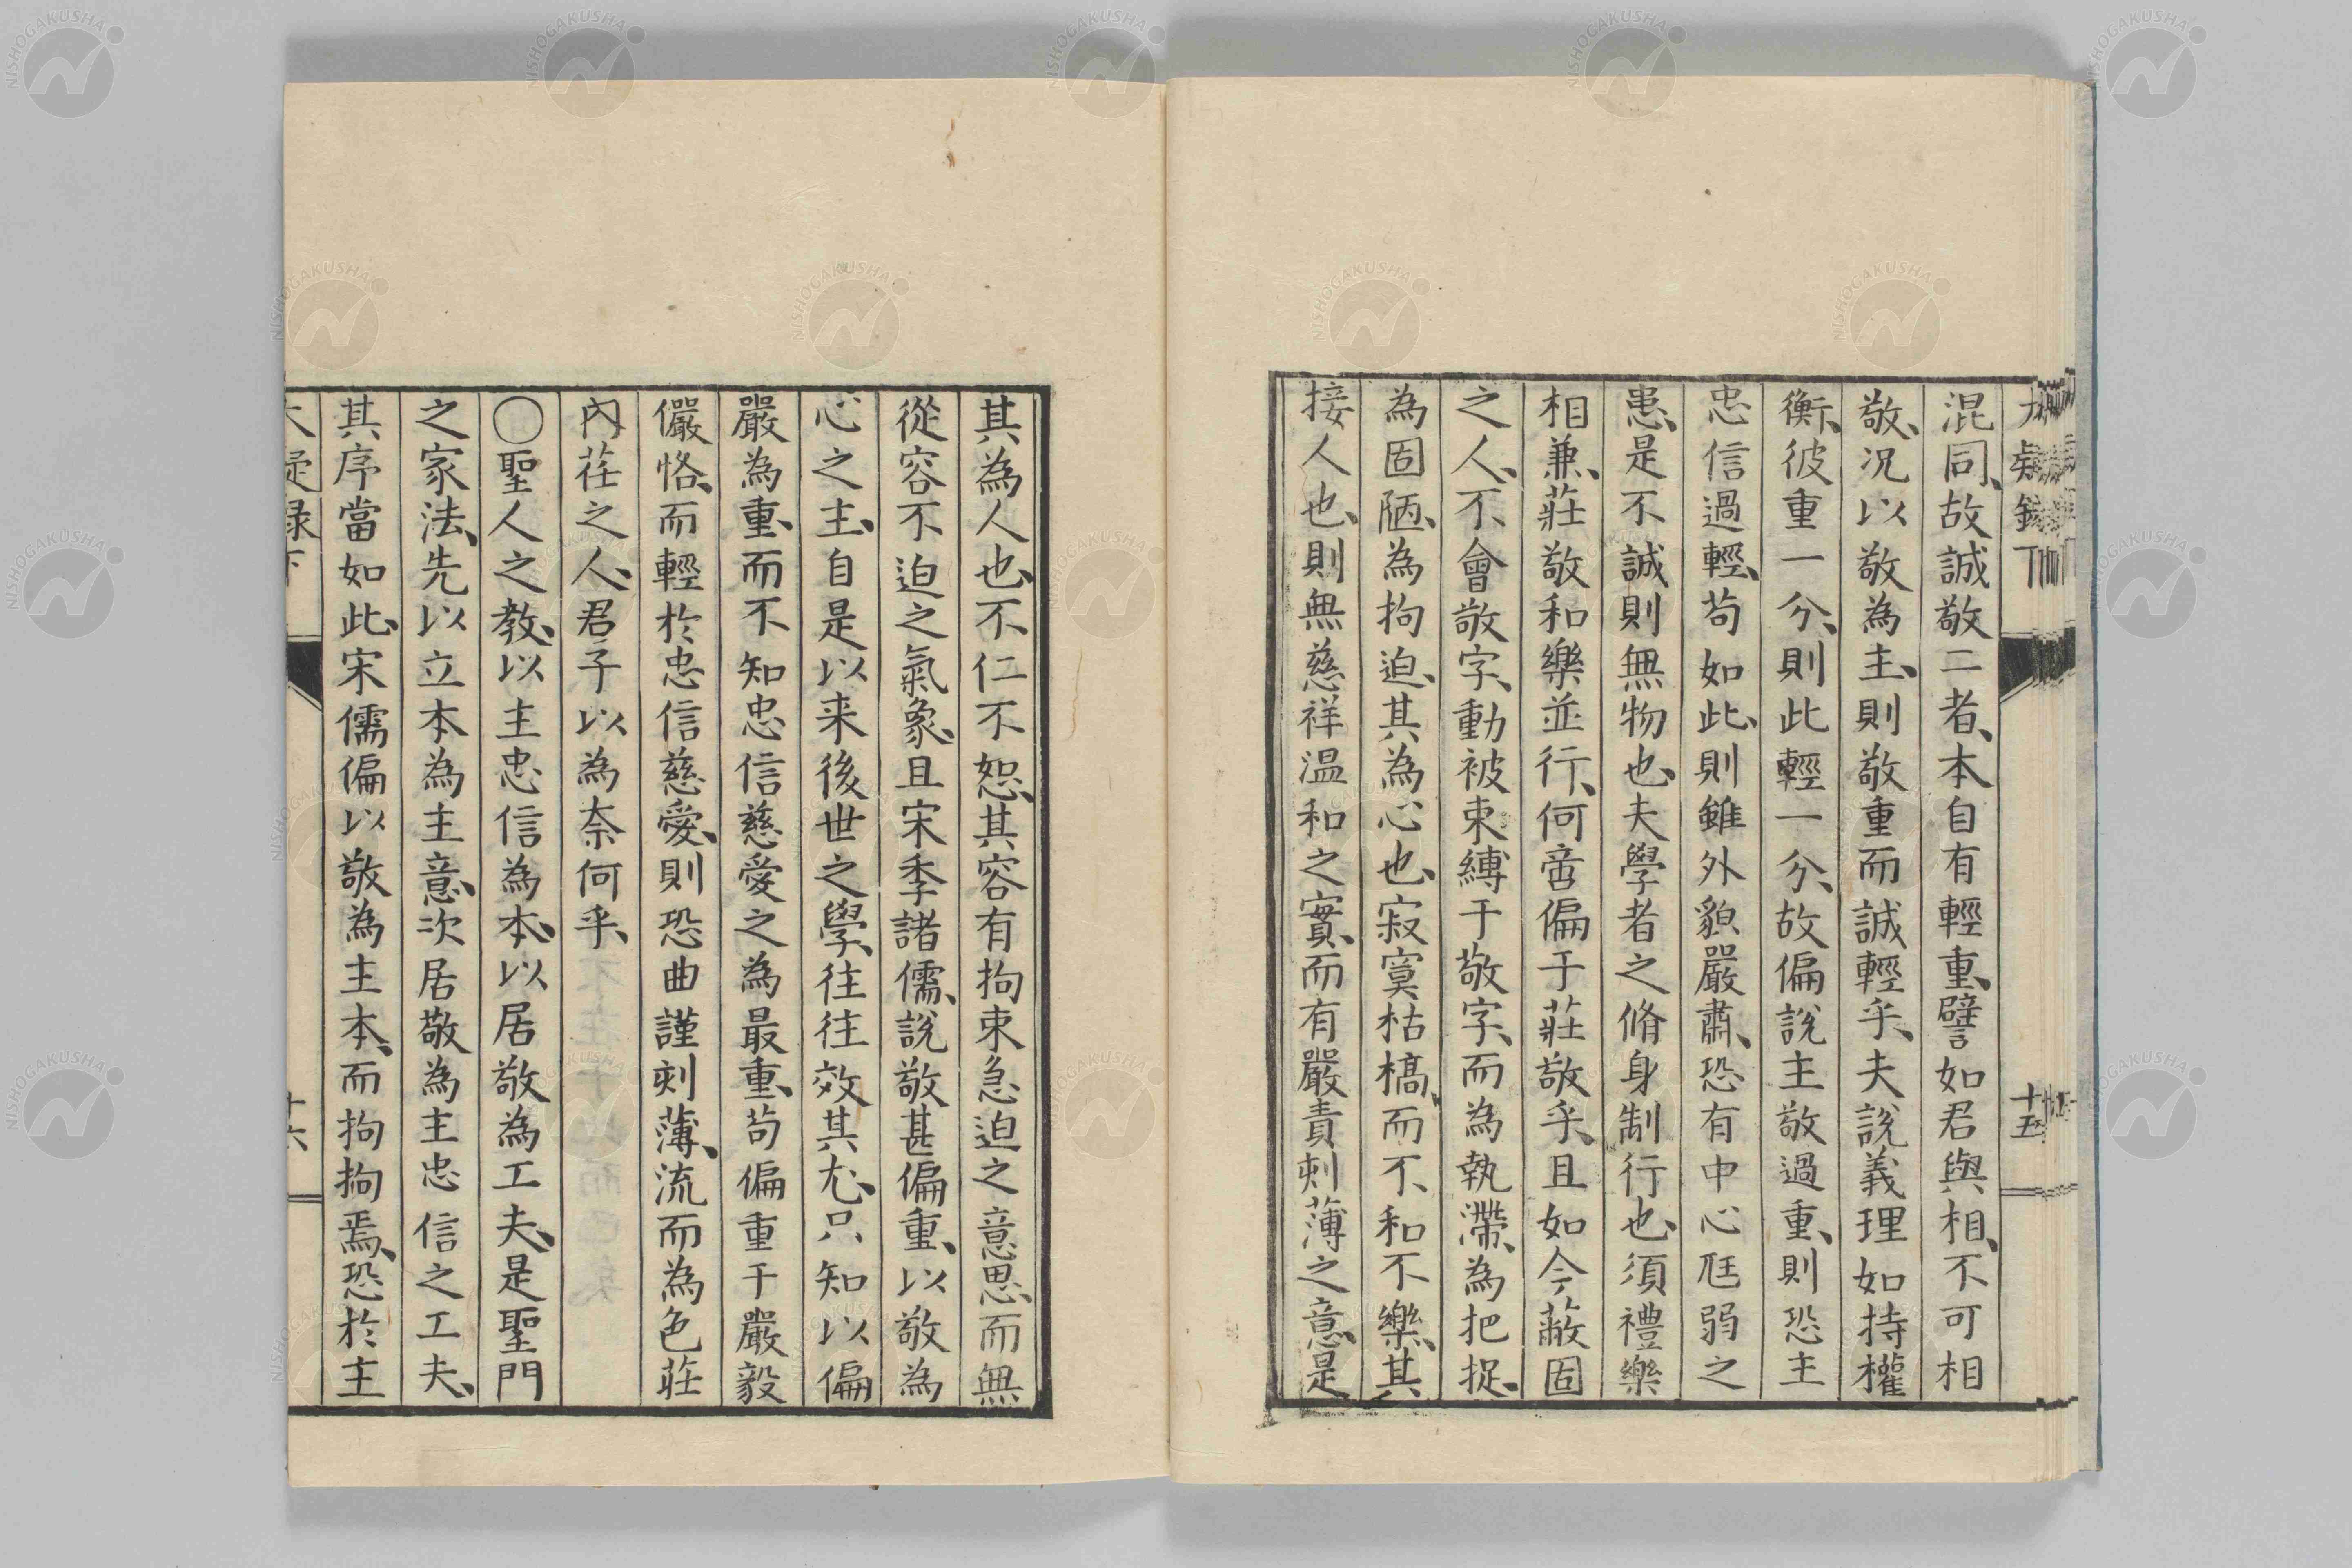 混同、故誠敬二者、本自有輕重、譬如君與相、不可相
敬、況以敬為主、則敬重而誠輕乎、夫說義理如持權
衡、彼重一分、則此輕一分、故偏說主敬過重、則恐主
忠信過輕、苟如此、則雖外貌嚴肅、恐有中心尫弱之
患、是不誠則無物也、夫學者之脩身制行也、須禮樂
相兼、莊敬和樂並行、何啻偏于莊敬乎、且如今蔽固
之人、不會敬字、動被束縛于敬字、而為執滯、為把捉、
為固陋、為拘迫、其為心也、寂寞枯槁、而不和不樂、其
接人也、則無慈祥温和之實、而有嚴責刺薄之意、是
十五
其為人也、不仁不恕、其容有拘束急迫之意思、而無
從容不迫之氣象、且宋季諸儒、說敬甚偏重、以敬為
心之主、自是以来後世之學、往往效其尤、只知以偏
嚴為重、而不知忠信慈愛之為最重、苟偏重于嚴毅
儼恪、而輕於忠信慈愛、則恐曲謹刺薄、流而為色莊
內荏之人、君子以為奈何乎、
〇聖人之教、以主忠信為本、以居敬為工夫、是聖門
之家法、先以立本為主意、次居敬為主忠信之工夫、
其序當如此、宋儒偏以敬為主本、而拘拘焉、恐於主
大疑録下
十六
NISHOGAKUSHA